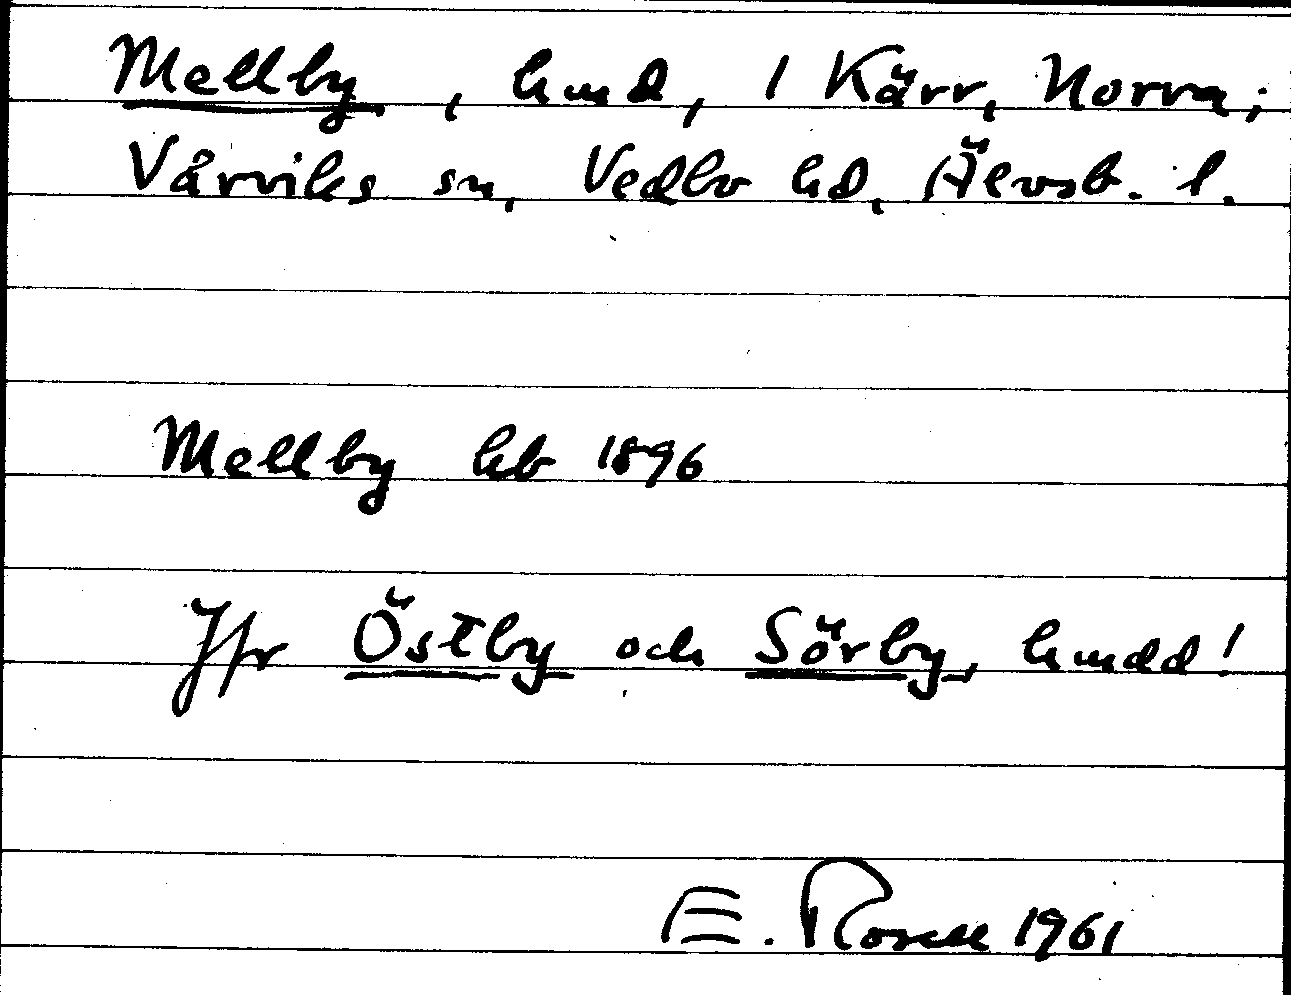 Mellby, hmd, 1 Kärr, Norra;
Vårviks sn, Vedbo hd, Älvsb. l.
Mellby hb 1896
Jfr Östby och Sörby, hmdd!
E. Rosell 1961